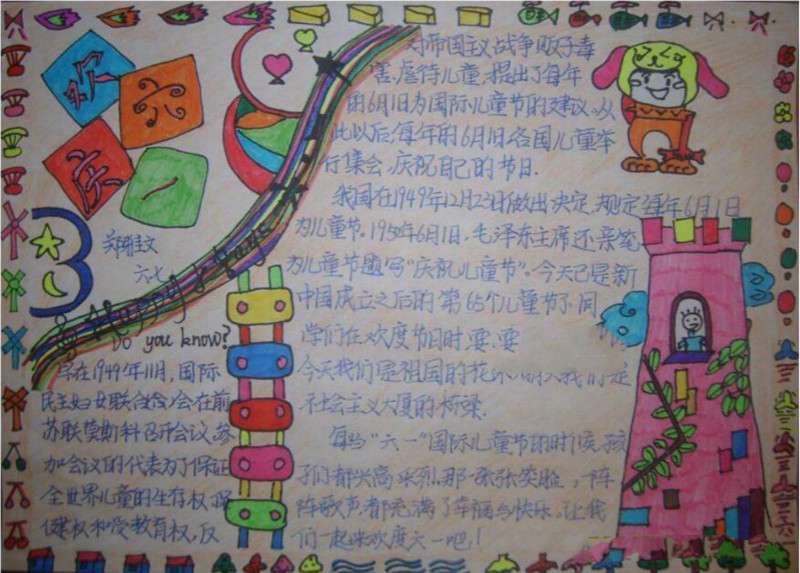 欢
六
庆
一
六.七
Happy 6.1 days
Do you know?
早在1949年11月，国际
民主妇女联合会会在前
苏联莫斯科召开会议。参
加会议的代表为了保证
全世界儿童的生存权、保
健权和受教育权，反
对帝国主义战争贩子毒
害、虐待儿童，提出了每年
的6月1日为国际儿童节的建议。从
此以后，每年的6月1日，各国儿童举
行集会，庆祝自己的节日.
我国在1949年12月23日做出决定，规定每年6月1日
为儿童节，1950年6月1日，毛泽东主席还亲笔
为儿童节题写“庆祝儿童节”。今天已是新
中国成立之后的第65个儿童节了，同
学们在欢度节日时，要、要
今天我们是祖国的花
社会主义大厦的桥梁.
每当“六一”国际儿童节的时候，孩
子们都兴高采烈，那一张张笑脸，一阵
阵歌声都充满了幸福与快乐。让我
们一起来欢度六一吧！